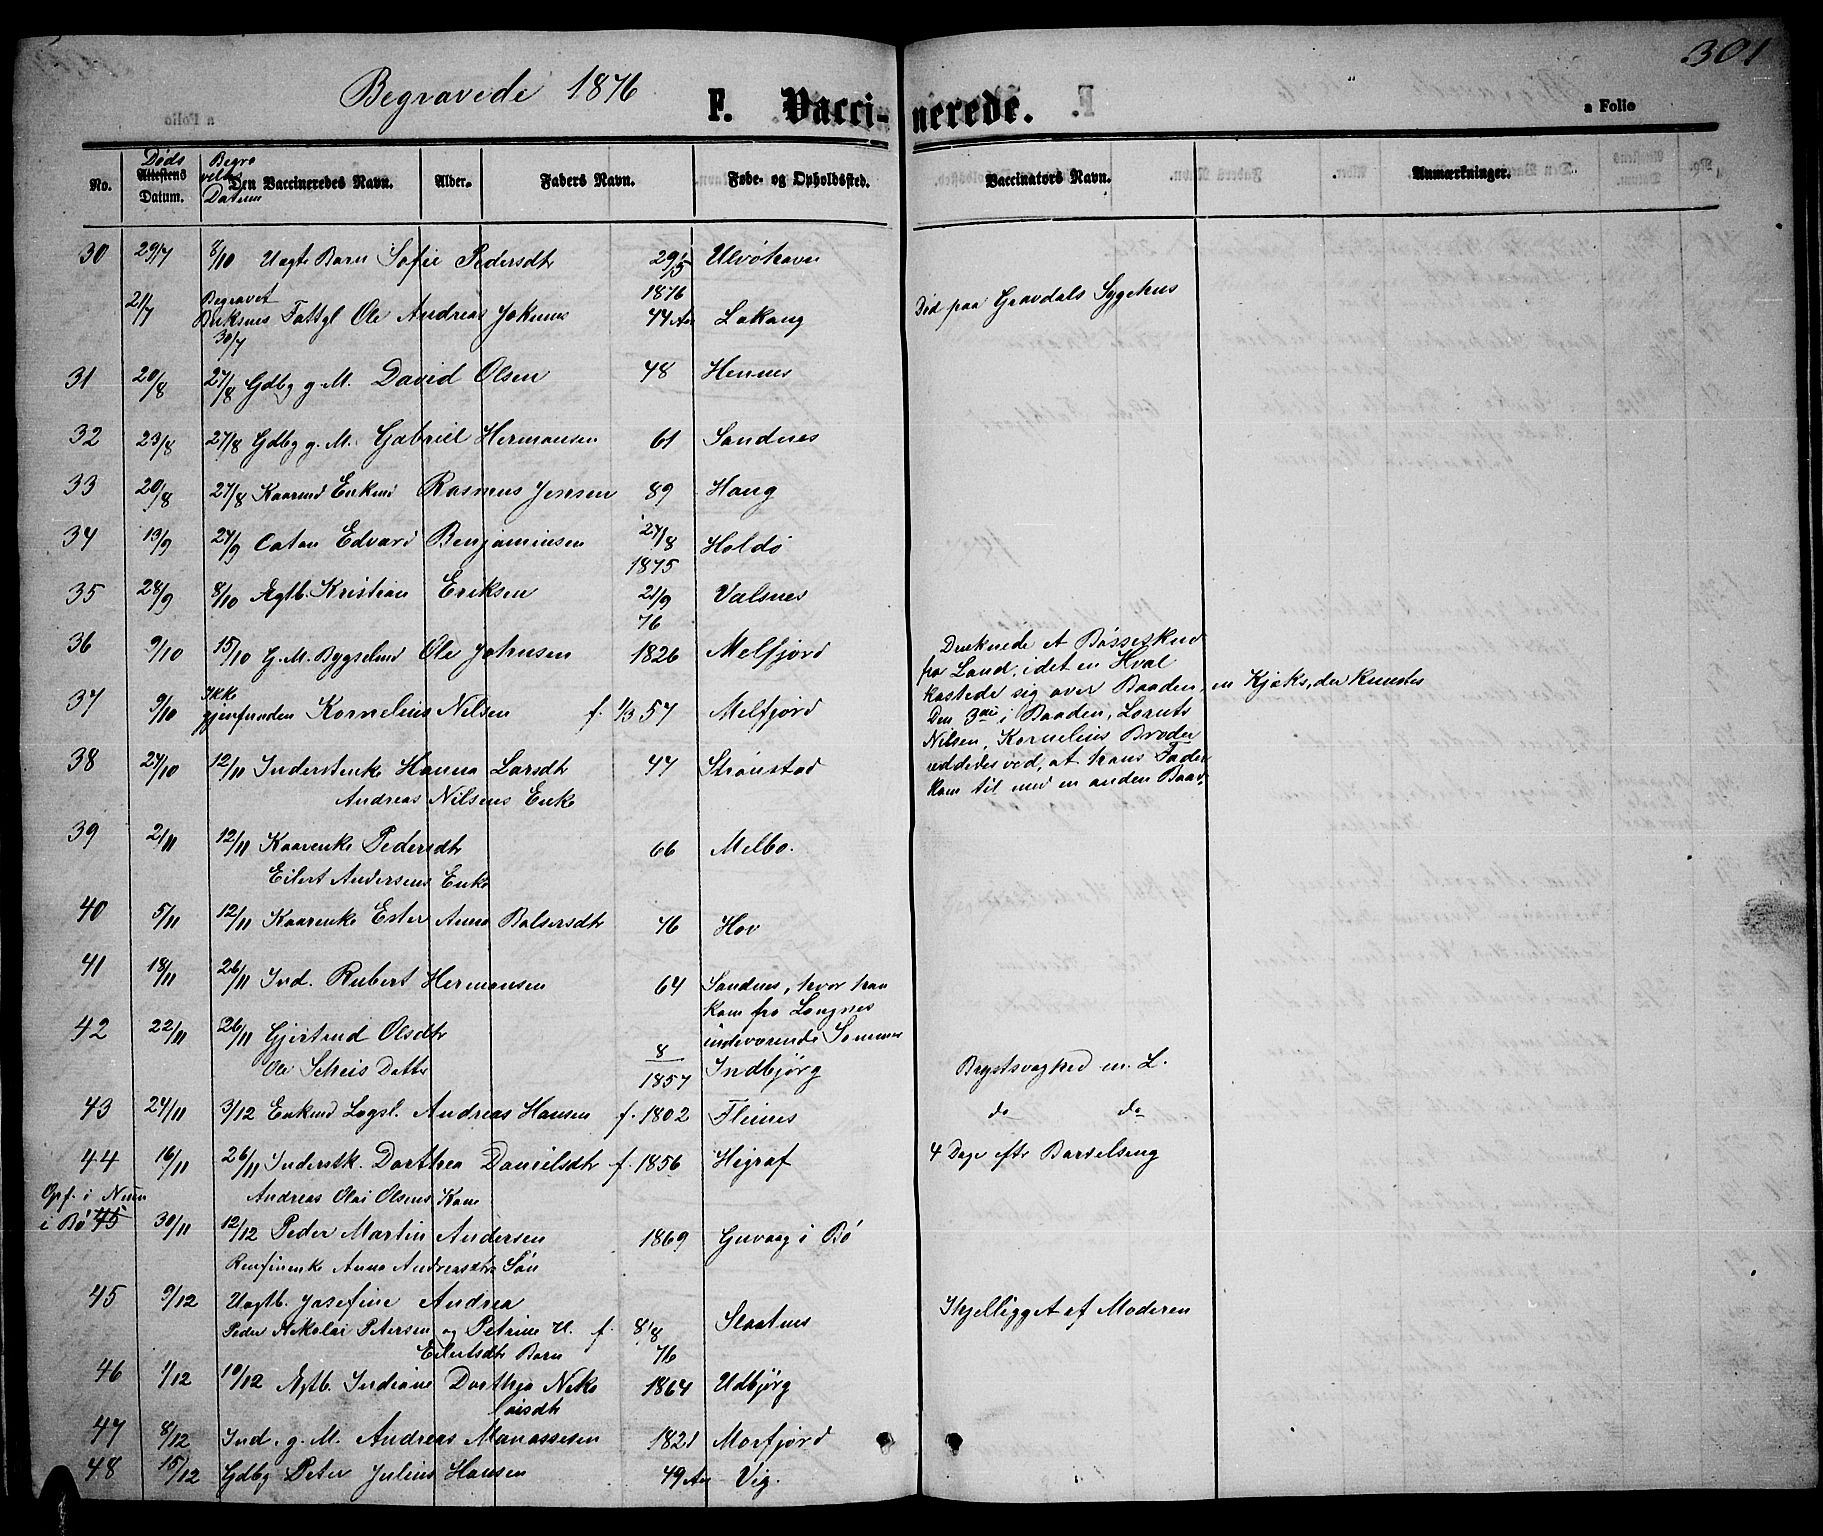 301
Begravede 1876
F. Vaccinerede.
a Folio
No. Døds Attestens Datum. Begravelses Datum Den Vaccineredes Navn. Alder. Faders Navn. Føde- og Opholdssted. Vaccinators Navn. Anmærkninger.
30 29/7 8/10 Uægte Barn Sofie Pedersdtr 29/5 1876 Ulvøhavn
21/7 Begravet Buksnes 30/7 Fattgl Ole Andreas Jokums 44 Aar Lakang Død paa Gravdals Sygehus
31 20/8 27/8 Gdbg g M. David Olsen 48 Hennes
32 23/8 27/8 Gdbg g. M. Gabriel Hermansen 61 Sandnes
33 20/8 27/8 Kaarmd Enkmd Rasmus Jensen 89 Haug
34 13/9 24/9 Caton Edvard Benjaminsen 27/8 1875 Holdø
35 28/9 8/10 Ægtb. Kristian Eriksen 21/9 76 Valsnes
36 9/10 15/10 G. M. Bygselmd Ole Johnsen 1826 Melfjord
37 9/10 Ikke gjenfunden Kornelius Nilsen f. 1/3 57 Melfjord
Druknede et Bøsseskud
fra Land, idet en Hval
kastede sig over Baaden, en Kjæks, der knustes
Den 3die i Baaden, Lorents
Nilsen, Kornelius Broder
reddedes ved, at hans Fader
kom til med en anden Baad.
38 24/10 12/11 Inderstenke Hanna Larsdtr 77 Strønstad
Andreas Nilsens Enke
39 2/11 12/11 Kaarenke Pedersdtr 66 Melbo.
Eilert Andersens Enke
40 5/11 12/11 Kaarenke Ester Anna Balsersdtr 76 Hov
41 18/11 26/11 Ind. Rubert Hermansen 64 Sandnes, hvor han
kom fra Langnes
indeværende Sommer
42 22/11 26/11 Gjertrud Olsdtr 8/1857 Indbjørg Brystsvaghed m. L.
Ole Scheis Datter
43 24/11 3/12 Enkmd Logsl. Andreas Hansen f. 1802 Flimes do do
44 16/11 26/11 Inderstk. Dorthea Danielsdtr f. 1856 Higraf 4 Dage eftr Barselseng
Andreas Olai Olsens Kone
Opf. i Num
i Bø 45 30/11 12/12 Peder Martin Andersen 1869 Guvaag i Bø
Andreasdtr Søn
45 9/12 Uægtb. Josefine Andrea f. 8/8 76 Slaatnes Ihjelligget af Moderen
Peder Nikolai Petersen og Petrine H.
Eilertsdtr Barn
46 1/12 10/12 Ægtb. Indiane Dorthea Niko
laisdtr 1864 Udbjørg
47 8/12 Ind. g. M. Andreas Manassesen 1821 Morfjord
48 15/12 Gdbg Peter Julius Hansen 49 Aar Vig.